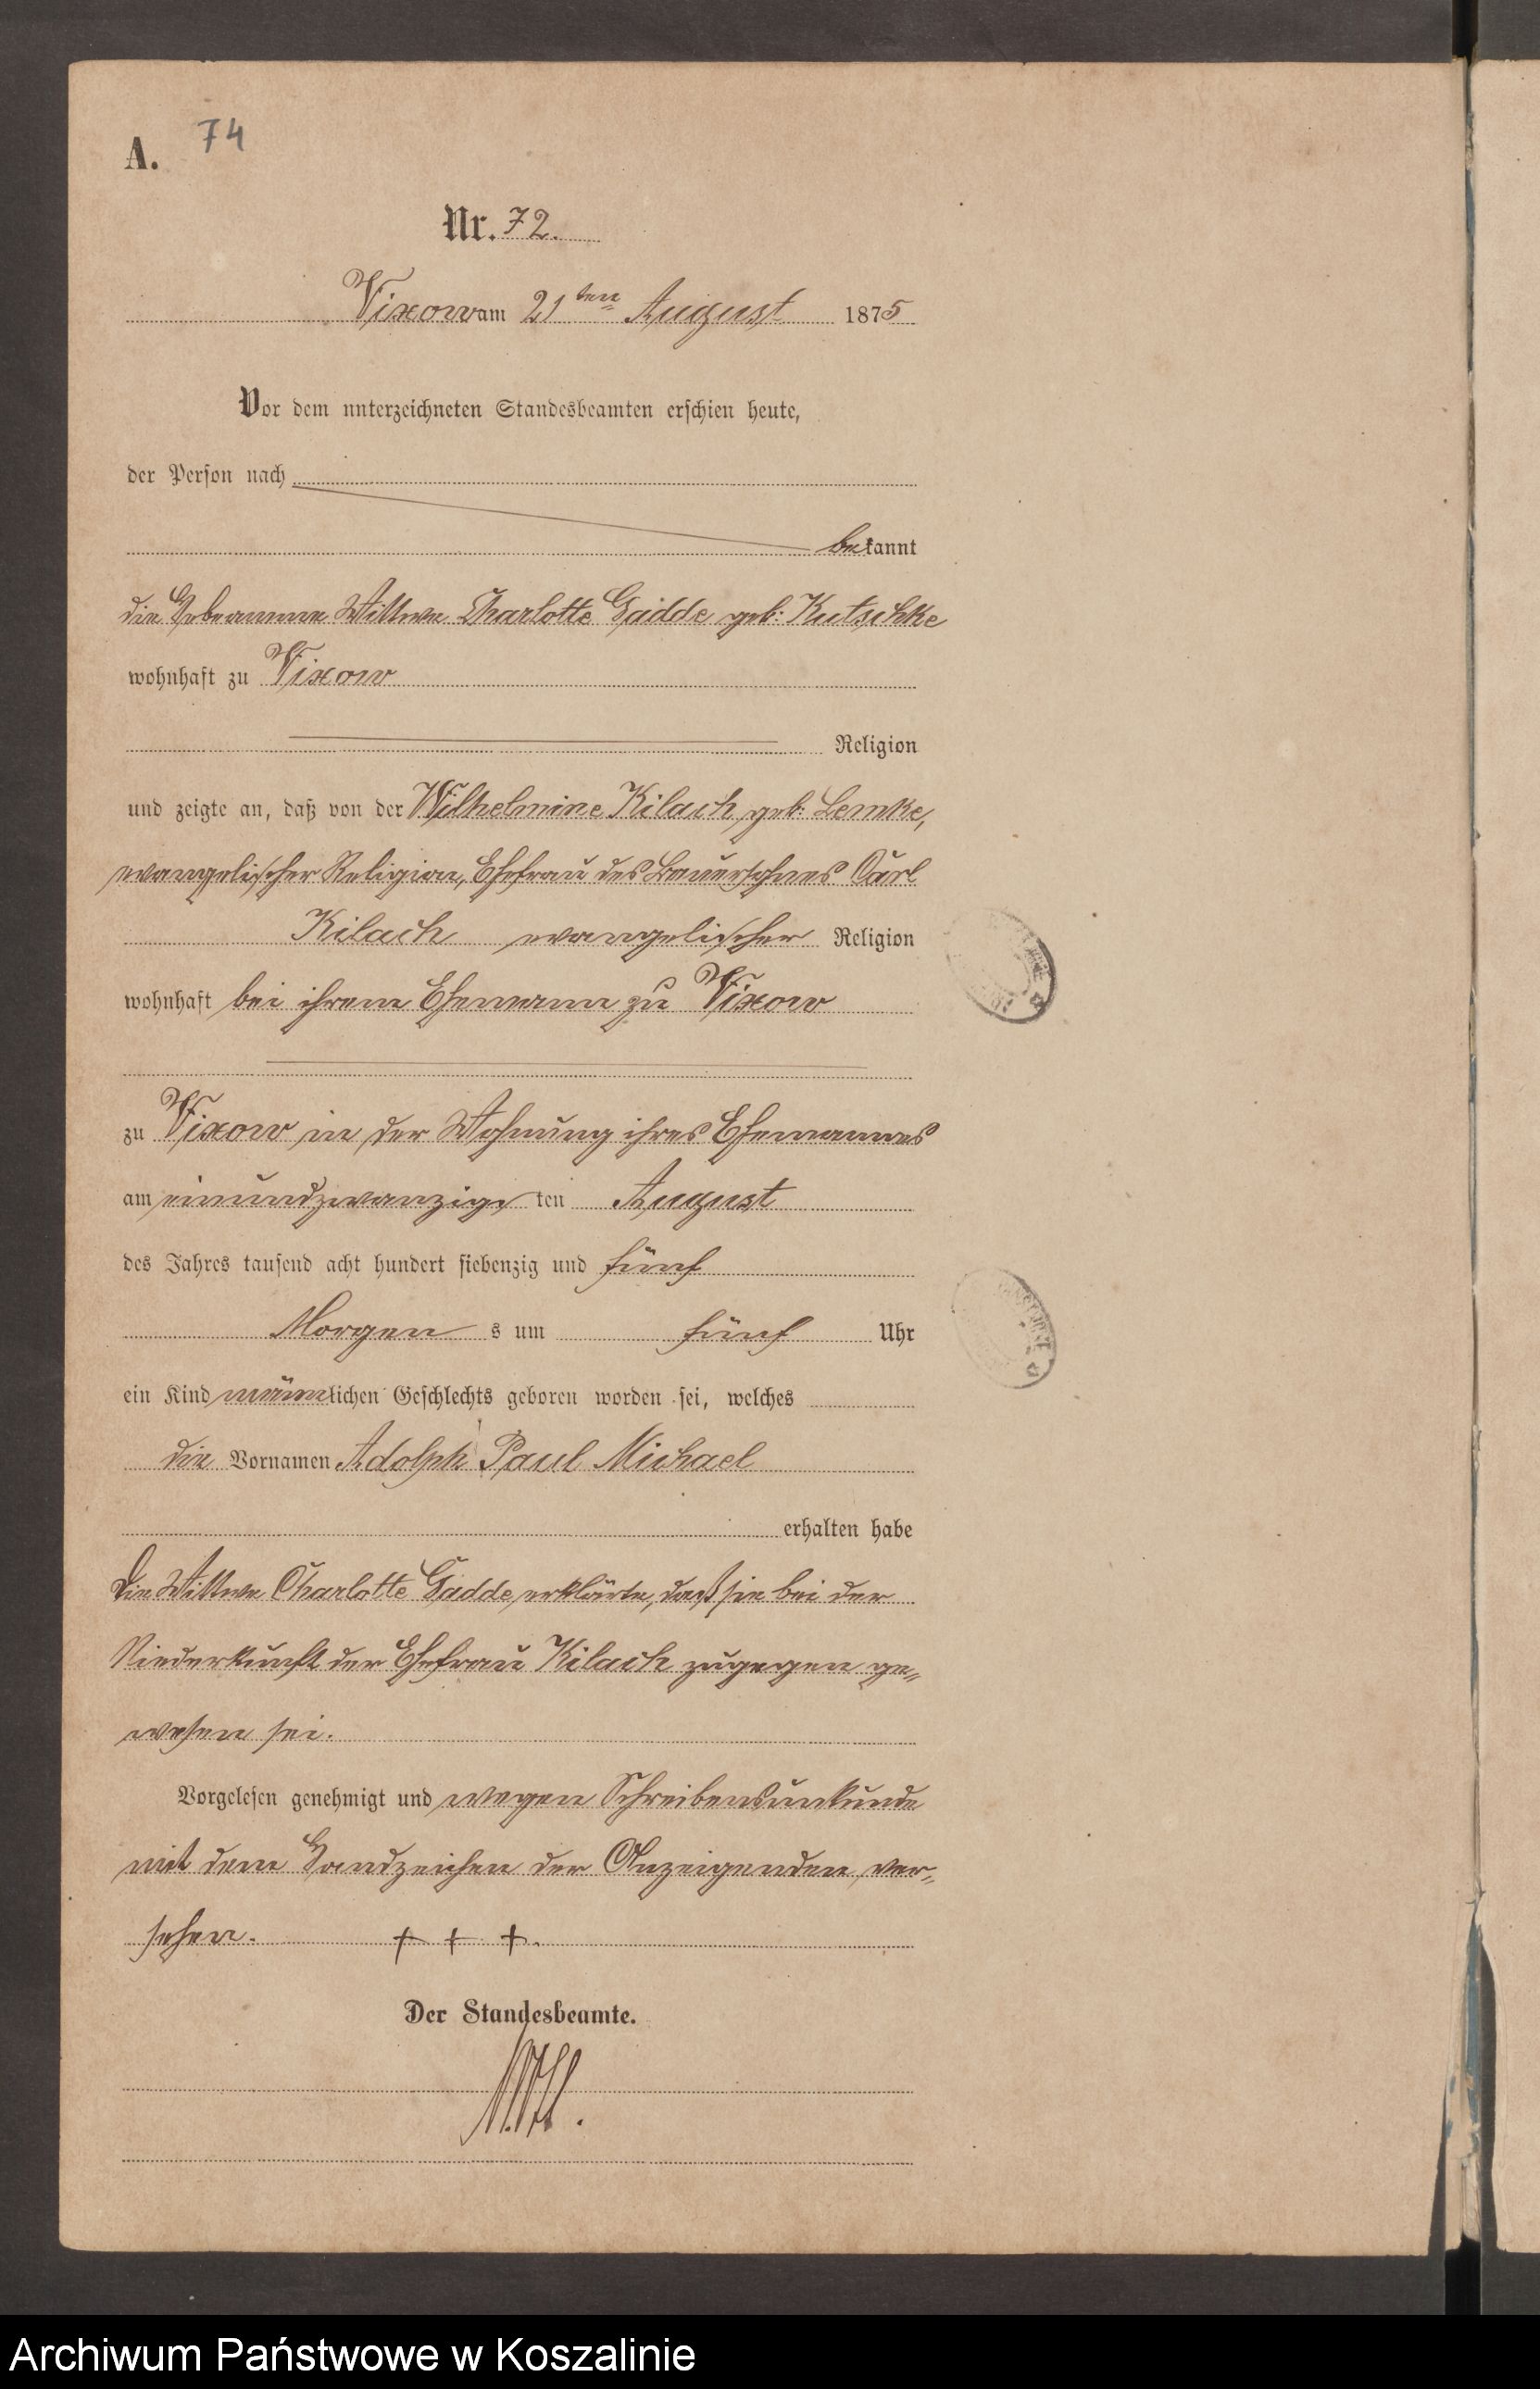 A. 74
Nr. 72.
Vixow am 21ten August 1875
Vor dem unterzeichneten Standesbeamten erschien heute,
der Person nach
bekannt
die Hebeamme Wittwe Charlotte Gadde geb: Kutschke
wohnhaft zu Vixow
Religion
und zeigte an, daß von der Wilhelmine Kilach geb: Lemke,
evangelischer Religion, Ehefrau des Bauersohnes Carl
Kilach evangelischer Religion
wohnhaft bei ihrem Ehemann zu Vixow
zu Vixow in der Wohnung ihres Ehemannes
am einundzwanzigsten August
des Jahres tausend acht hundert siebenzig und fünf
Morgens um fünf Uhr
ein Kind männlichen Geschlechts geboren worden sei, welches
die Vornamen Adolph Paul Michael
erhalten habe
Die Wittwe Charlotte Gadde erklärte, daß sie bei der
Niederkunft der Ehefrau Kilach zugegen ge-
wesen sei.
Vorgelesen genehmigt und wegen Schreibensunkunde
mit dem Handzeichen der Anzeigenden ver-
sehen. + + +.
Der Standesbeamte.
Archiwum Państwowe w Koszalinie